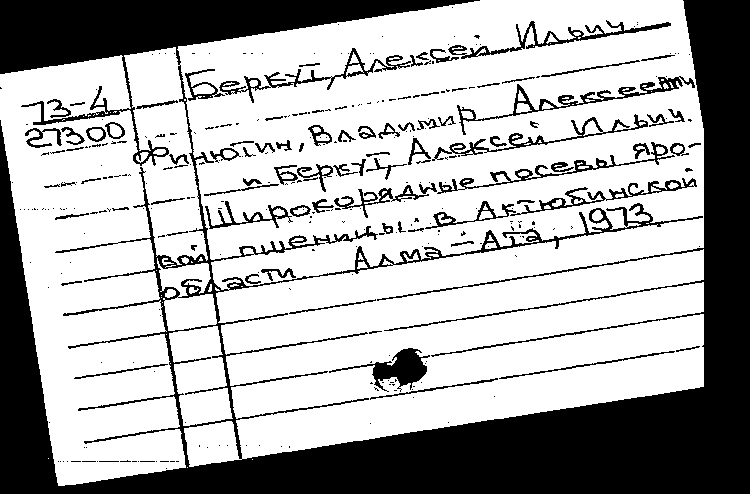 Беркут, Алексей Ильич
73-4
27300
Финютин, Владимир Алексеевич
и Беркут, Алексей Ильич.
Широкорядные посевы яро-
вой пшеницы в Актюбинской
области. Алма-Ата, 1973.